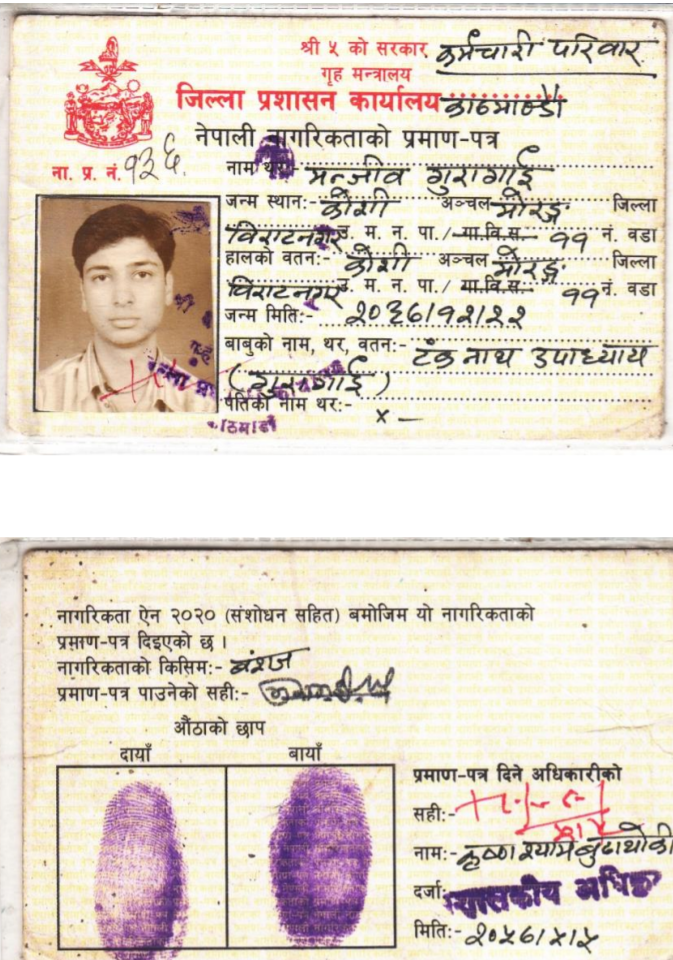 श्री ५ को सरकार कर्मचारी परिवार
गृह मन्त्रालय
जिल्ला प्रशासन कार्यालय काठमाण्डौ
नेपाली नागरिकताको प्रमाण-पत्र
ना. प्र. नं. १३६
नाम थर:- मन्जीव गुरागाई
जन्म स्थान:- कोशी अञ्चल मोरङ्ग जिल्ला
विराटनगर उ. म. न. पा./गा.वि.स. ११ नं. वडा
हालको वतन:- कोशी अञ्चल मोरङ्ग जिल्ला
विराटनगर उ. म. न. पा./गा.वि.स. ११ नं. वडा
जन्म मिति:- २०३६।१२।२२
बाबुको नाम, थर, वतन:- टंक नाथ उपाध्याय
(गुरागाई)
पतिको नाम थर:- × —
नागरिकता ऐन २०२० (संशोधन सहित) बमोजिम यो नागरिकताको
प्रमाण-पत्र दिइएको छ ।
नागरिकताको किसिम:- वंशज
प्रमाण-पत्र पाउनेको सही:-
औंठाको छाप
दायाँ बायाँ
प्रमाण-पत्र दिने अधिकारीको
सही:-
नाम:- कृष्ण श्याम बुढाथोकी
दर्जा:- शासकीय अधिकृत
मिति:- २०५६।५।५